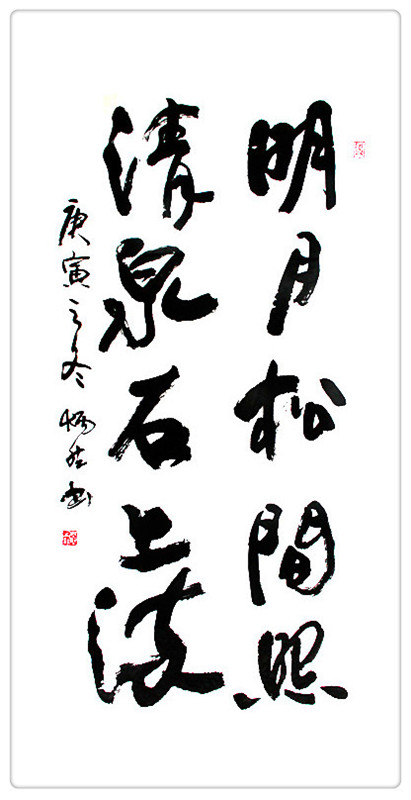 明月松間照
清泉石上流
庚寅之冬 書